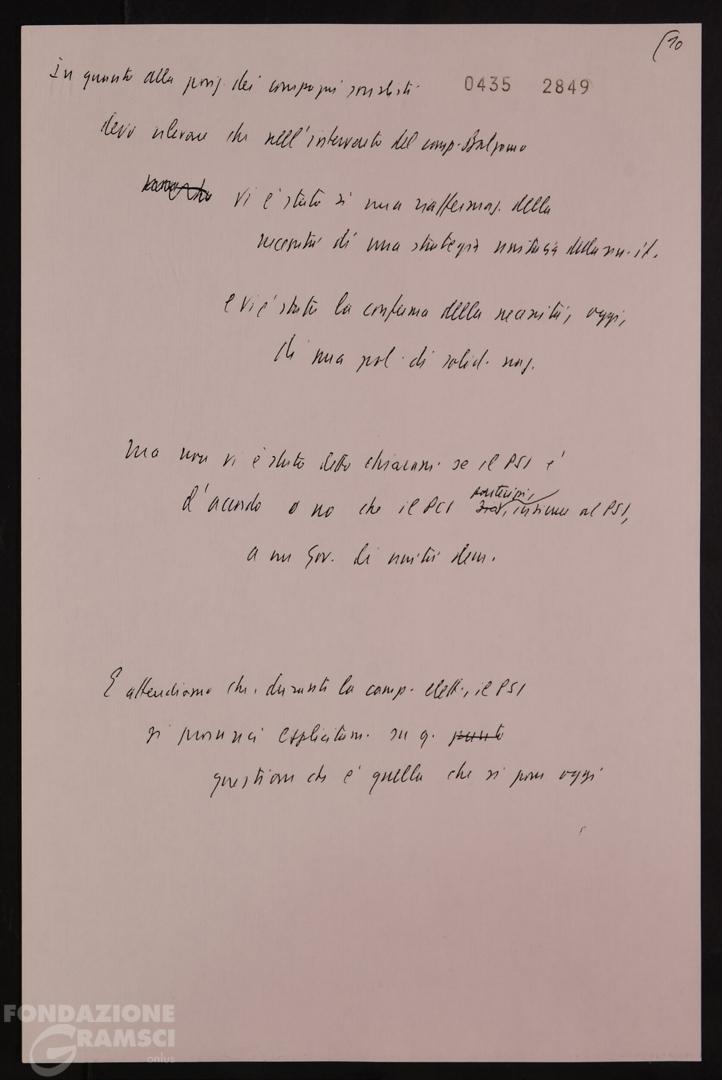 (10
In quanto alla posiz. dei compagni socialisti
0435 2849
devo rilevare che nell'intervento del comp. Balzamo
vi è stata sì una riaffermaz. della
necessità di una strategia unitaria della sin. it.
e vi è stata la conferma della necessità, oggi,
di una pol. di solid. naz.
Ma non vi è stato detto chiaram. se il PSI è
d'accordo o no che il PCI partecipi, insieme al PSI,
a un Gov. di unità dem.
E attendiamo che, durante la camp. elett., il PSI
si pronunci esplicitam. su q. punto
questione che è quella che si pone oggi
FONDAZIONE
GRAMSCI
onlus